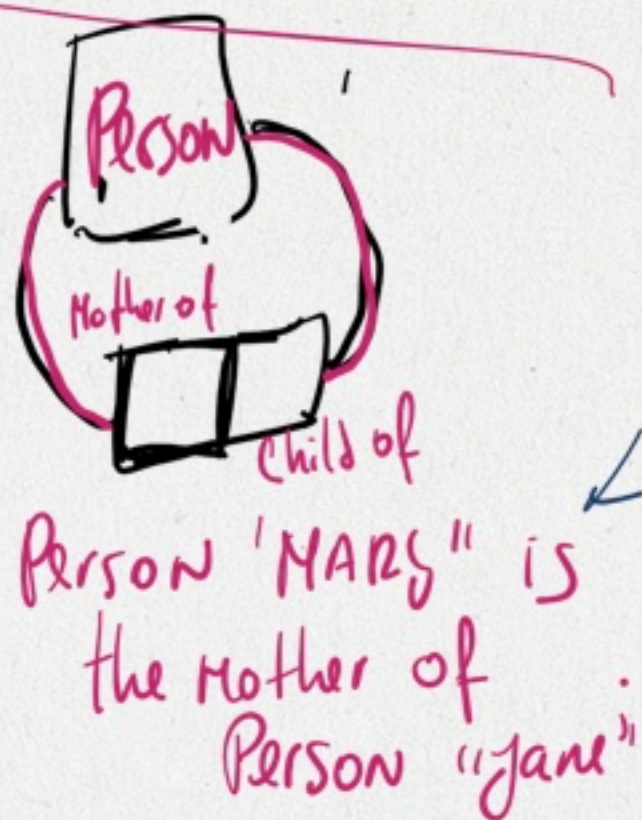 Person
Mother of
Child of
Person 'MARY" is
the Mother of
Person "Jane"